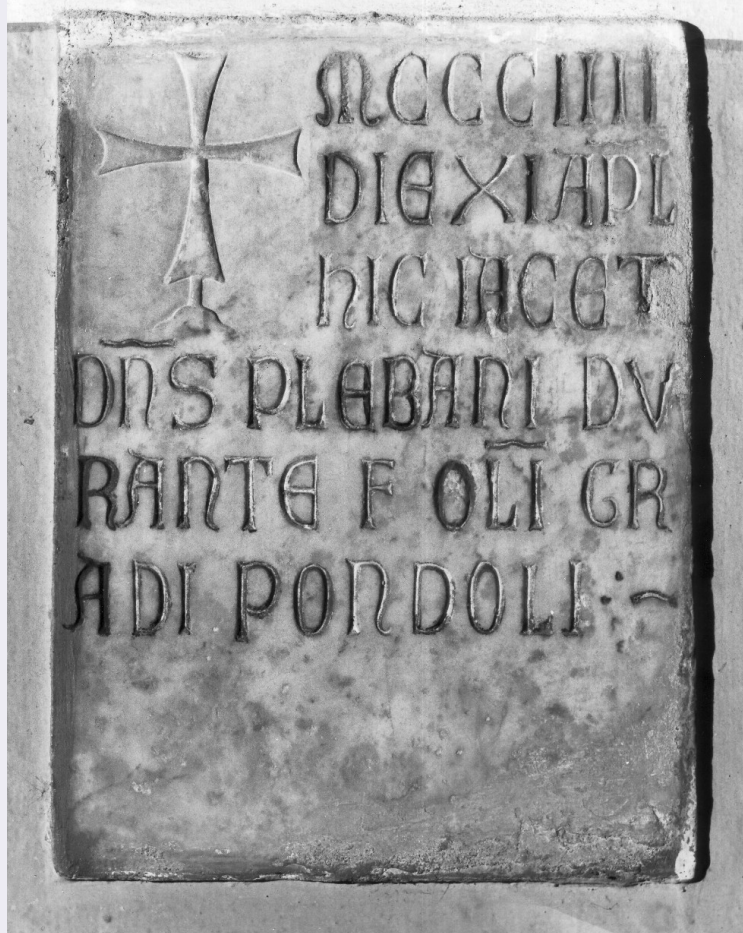 MCCCIIII
DIE XI APL
HIC IACET
DNS PLEBANI DV
RANTE F OLI GR
ADI PONDOLI :~